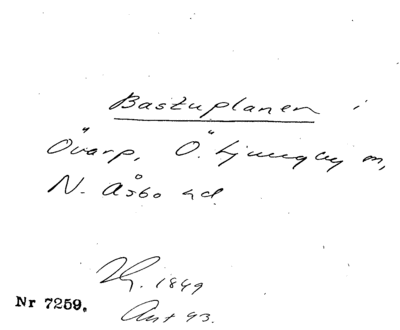 Bastuplanen i
Övarp, Ö. Ljungby sn,
N. Åsbo hd.
1849
Nr 7259.
Ant 93.